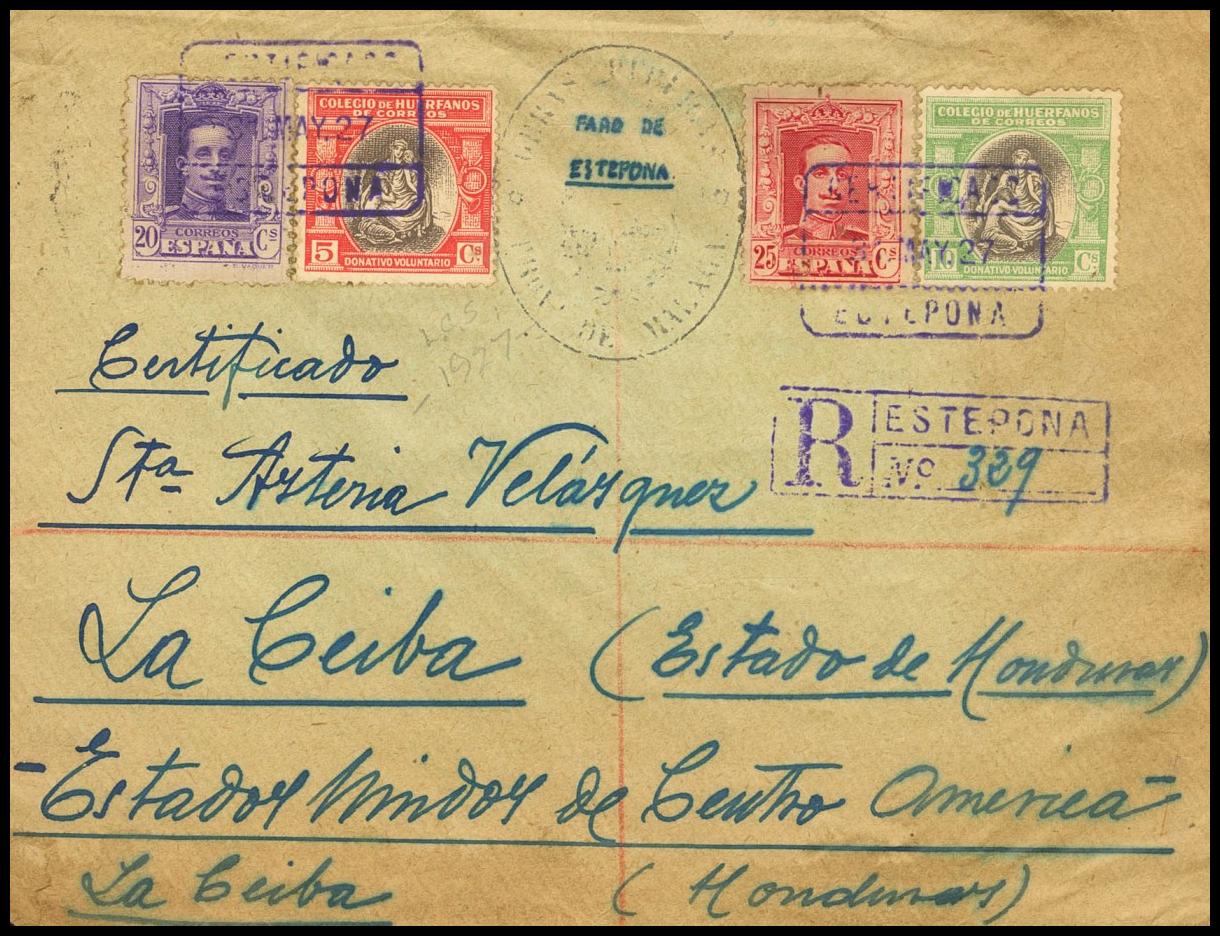 CERTIFICADO
MAY.27
ESTEPONA
CORREOS
20 ESPAÑA Cs
COLEGIO DE HUERFANOS
DE CORREOS
5 Cs
DONATIVO VOLUNTARIO
OBRAS PUBLICAS
FARO DE
ESTEPONA
PROV. DE MALAGA
CORREOS
25 ESPAÑA Cs
COLEGIO DE HUERFANOS
DE CORREOS
10 Cs
DONATIVO VOLUNTARIO
CERTIFICADO
MAY.27
ESTEPONA
1927
Certificado
R ESTEPONA
Nº 339
Sta Asteria Velásquez
La Ceiba (Estado de Honduras)
- Estados Unidos de Centro America -
La Ceiba (Honduras)